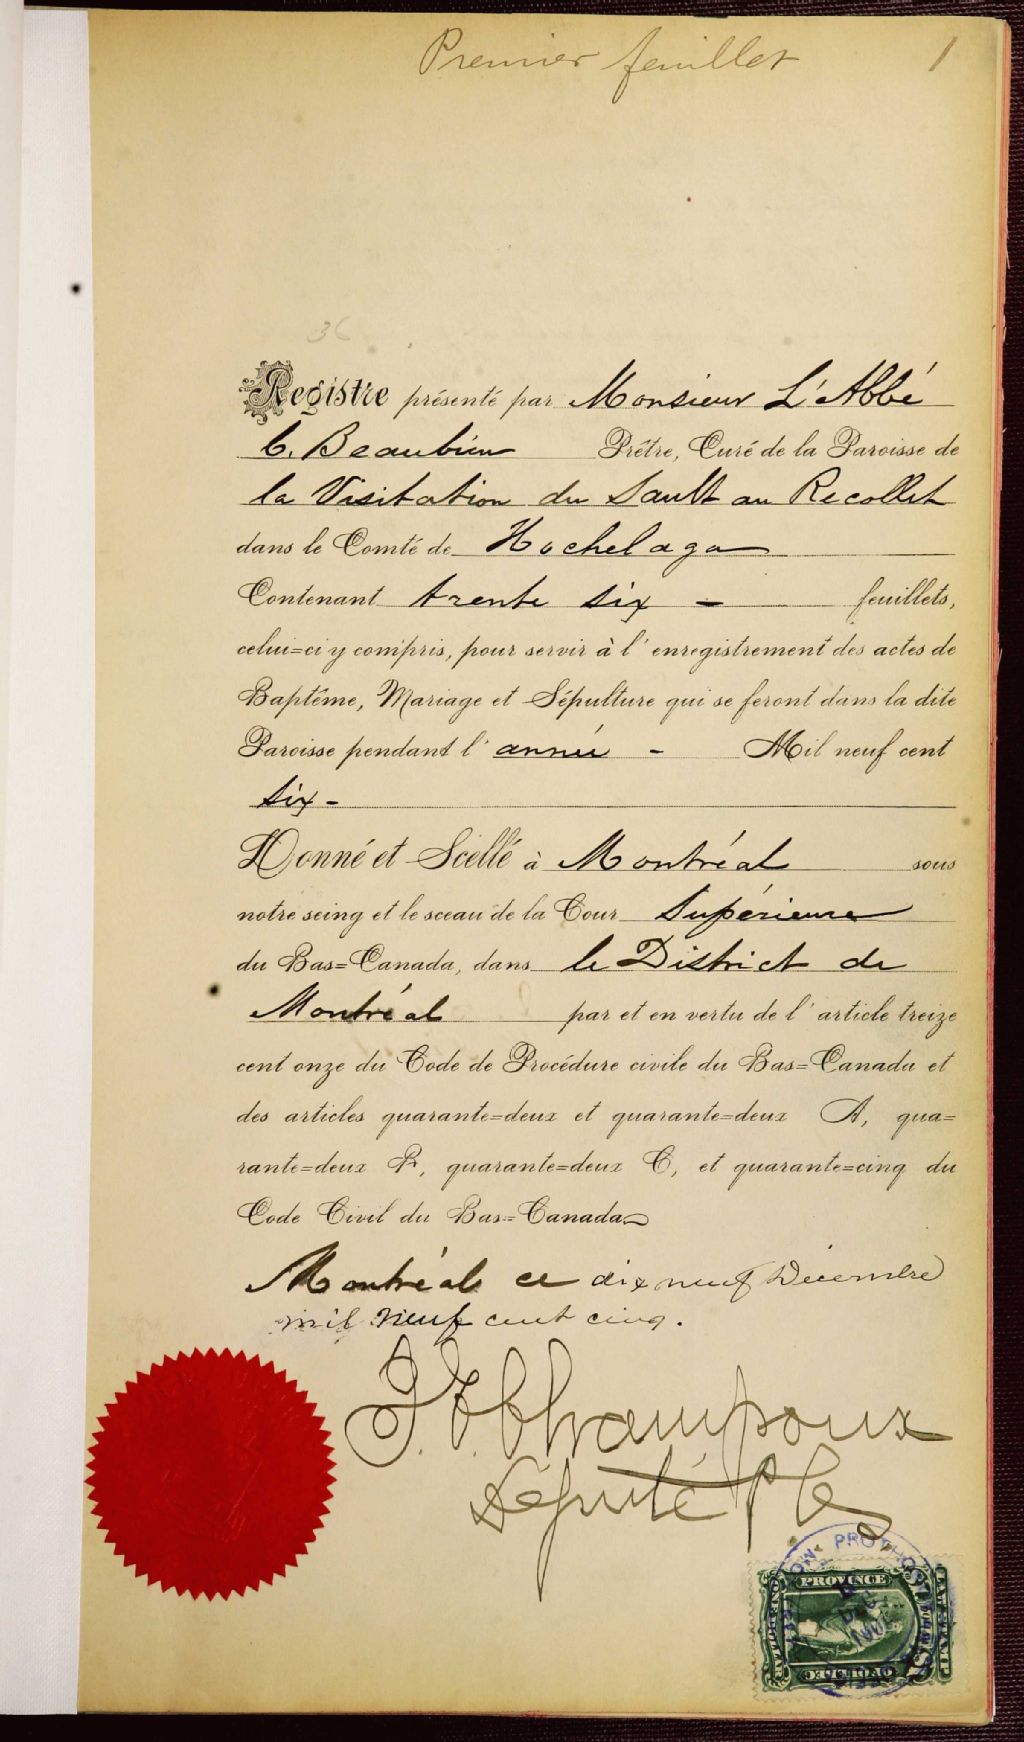 Premier feuillet 1
36
Registre présenté par Monsieur L'Abbé
C. Beaubien Prêtre, Curé de la Paroisse de
la Visitation du Sault au Recollet
dans le Comté de Hochelaga
Contenant trente six - feuillets,
celui=ci y compris, pour servir à l'enregistrement des actes de
Baptême, Mariage et Sépulture qui se feront dans la dite
Paroisse pendant l'année - Mil neuf cent
six -
Donné et Scellé à Montréal sous
notre seing et le sceau de la Cour Supérieure
du Bas=Canada, dans le District de
Montréal par et en vertu de l'article treize
cent onze du Code de Procédure civile du Bas=Canada et
des articles quarante=deux et quarante=deux A, qua=
rante=deux B, quarante=deux C, et quarante=cinq du
Code Civil du Bas=Canada
Montréal ce dix neuf Décembre
mil neuf cent cinq.
Champoux
Député P C S
PROTHONOTARY'S
PROVINCE
LAW STAMP
ONE DOLLAR
OF QUEBEC